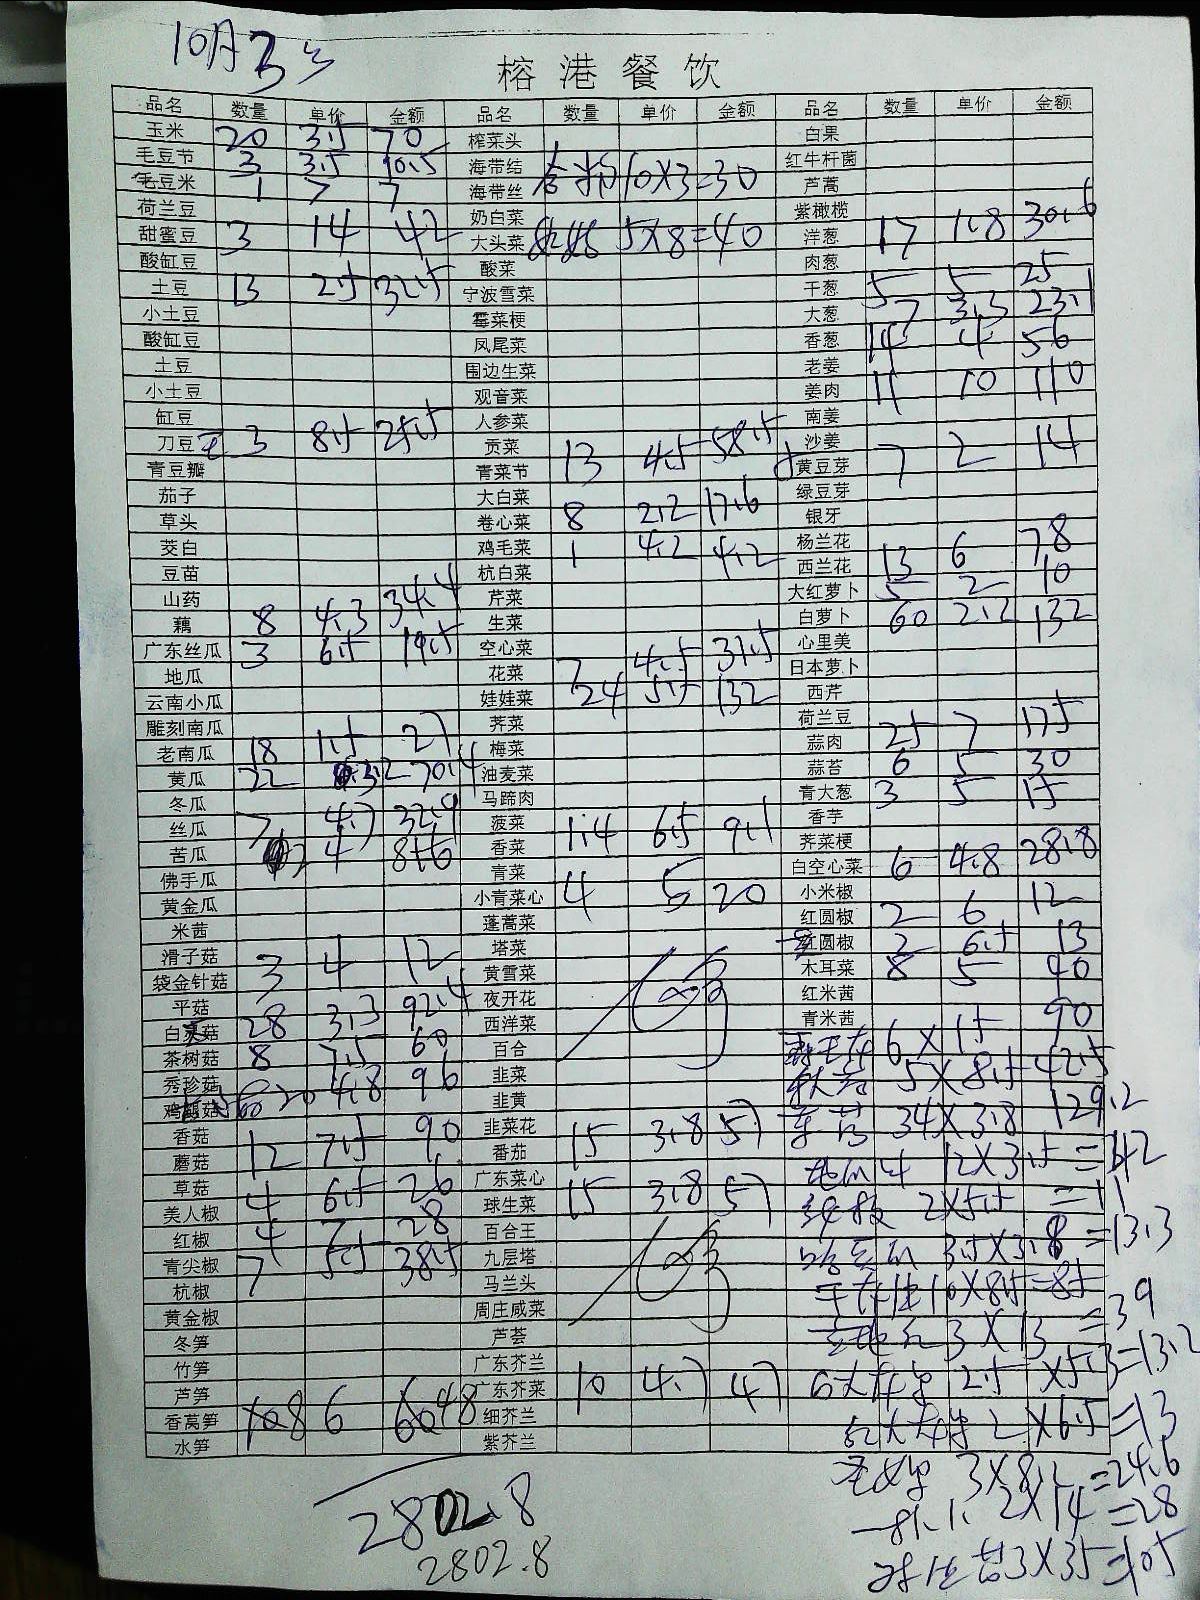 10月3号
榕港餐饮
品名 数量 单价 金额 品名 数量 单价 金额 品名 数量 单价 金额
玉米 20 3.5 70 榨菜头 白果
毛豆节 3 3.5 10.5 海带结 红牛杆菌
毛豆米 1 7 7 海带丝 10X3=30 芦蒿
荷兰豆 奶白菜 紫橄榄
甜蜜豆 3 14 42 大头菜 5X8=40 洋葱 17 1.8 30.6
酸缸豆 酸菜 肉葱
土豆 13 2.5 32.5 宁波雪菜 干葱 5 5 25
小土豆 霉菜梗 大葱 7 3.3 23.1
酸缸豆 凤尾菜 香葱 14 4 56
土豆 围边生菜 老姜
小土豆 观音菜 姜肉 11 10 110
缸豆 人参菜 南姜
刀豆 3 8.5 25.5 贡菜 沙姜
青豆瓣 青菜节 13 4.5 58.5 黄豆芽 7 2 14
茄子 大白菜 绿豆芽
草头 卷心菜 8 2.2 17.6 银牙
茭白 鸡毛菜 1 4.2 4.2 杨兰花
豆苗 杭白菜 西兰花 13 6 78
山药 芹菜 大红萝卜 5 2 10
藕 8 4.3 34.4 生菜 白萝卜 60 2.2 132
广东丝瓜 3 6.5 19.5 空心菜 心里美
地瓜 花菜 7 4.5 31.5 日本萝卜
云南小瓜 娃娃菜 24 5.5 132 西芹
雕刻南瓜 荠菜 荷兰豆
老南瓜 18 1.5 27 梅菜 蒜肉 25 7 175
黄瓜 22 3.2 70.4 油麦菜 蒜苔 6 5 30
冬瓜 马蹄肉 青大葱 3 5 15
丝瓜 7 4.7 32.9 菠菜 1.4 6.5 9.1 香芋
苦瓜 4 香菜 荠菜梗
佛手瓜 青菜 白空心菜 6 4.8 28.8
黄金瓜 小青菜心 4 5 20 小米椒
米茜 蓬蒿菜 红圆椒 2 6 12
滑子菇 塔菜 圆椒 2 6.5 13
袋金针菇 3 4 12 黄雪菜 木耳菜 8 5 40
平菇 夜开花 红米茜
白灵菇 28 3.3 92.4 西洋菜 青米茜
茶树菇 8 7.5 60 百合 6X15 90
秀珍菇 韭菜 5X8.5 42.5
鸡腿菇 20 4.8 96 韭黄
香菇 韭菜花 34X3.8 129.2
蘑菇 12 7.5 90 番茄 15 3.8 57
草菇 广东菜心 12X3.5=42
美人椒 4 6.5 26 球生菜 15 3.8 57 2X5.5=11
红椒 4 7 28 百合王
青尖椒 7 5.5 38.5 九层塔 3.5X3.8=13.3
杭椒 马兰头 10X8.5=85
黄金椒 周庄咸菜
冬笋 芦荟 3X13=39
竹笋 广东芥兰
芦笋 广东芥菜 10 4.7 47 2.5X5.3=13.2
香莴笋 8 6 48 细芥兰
水笋 紫芥兰 2X6.5=13
3X8.2=24.6
2802.8
2X14=28
2802.8
3X35=105